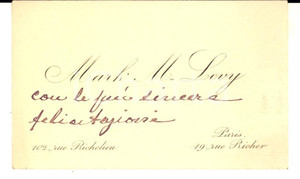 Mark M. Levy
con le più sincere
felicitazioni
Paris.
102, rue Richelieu 19, rue Richer